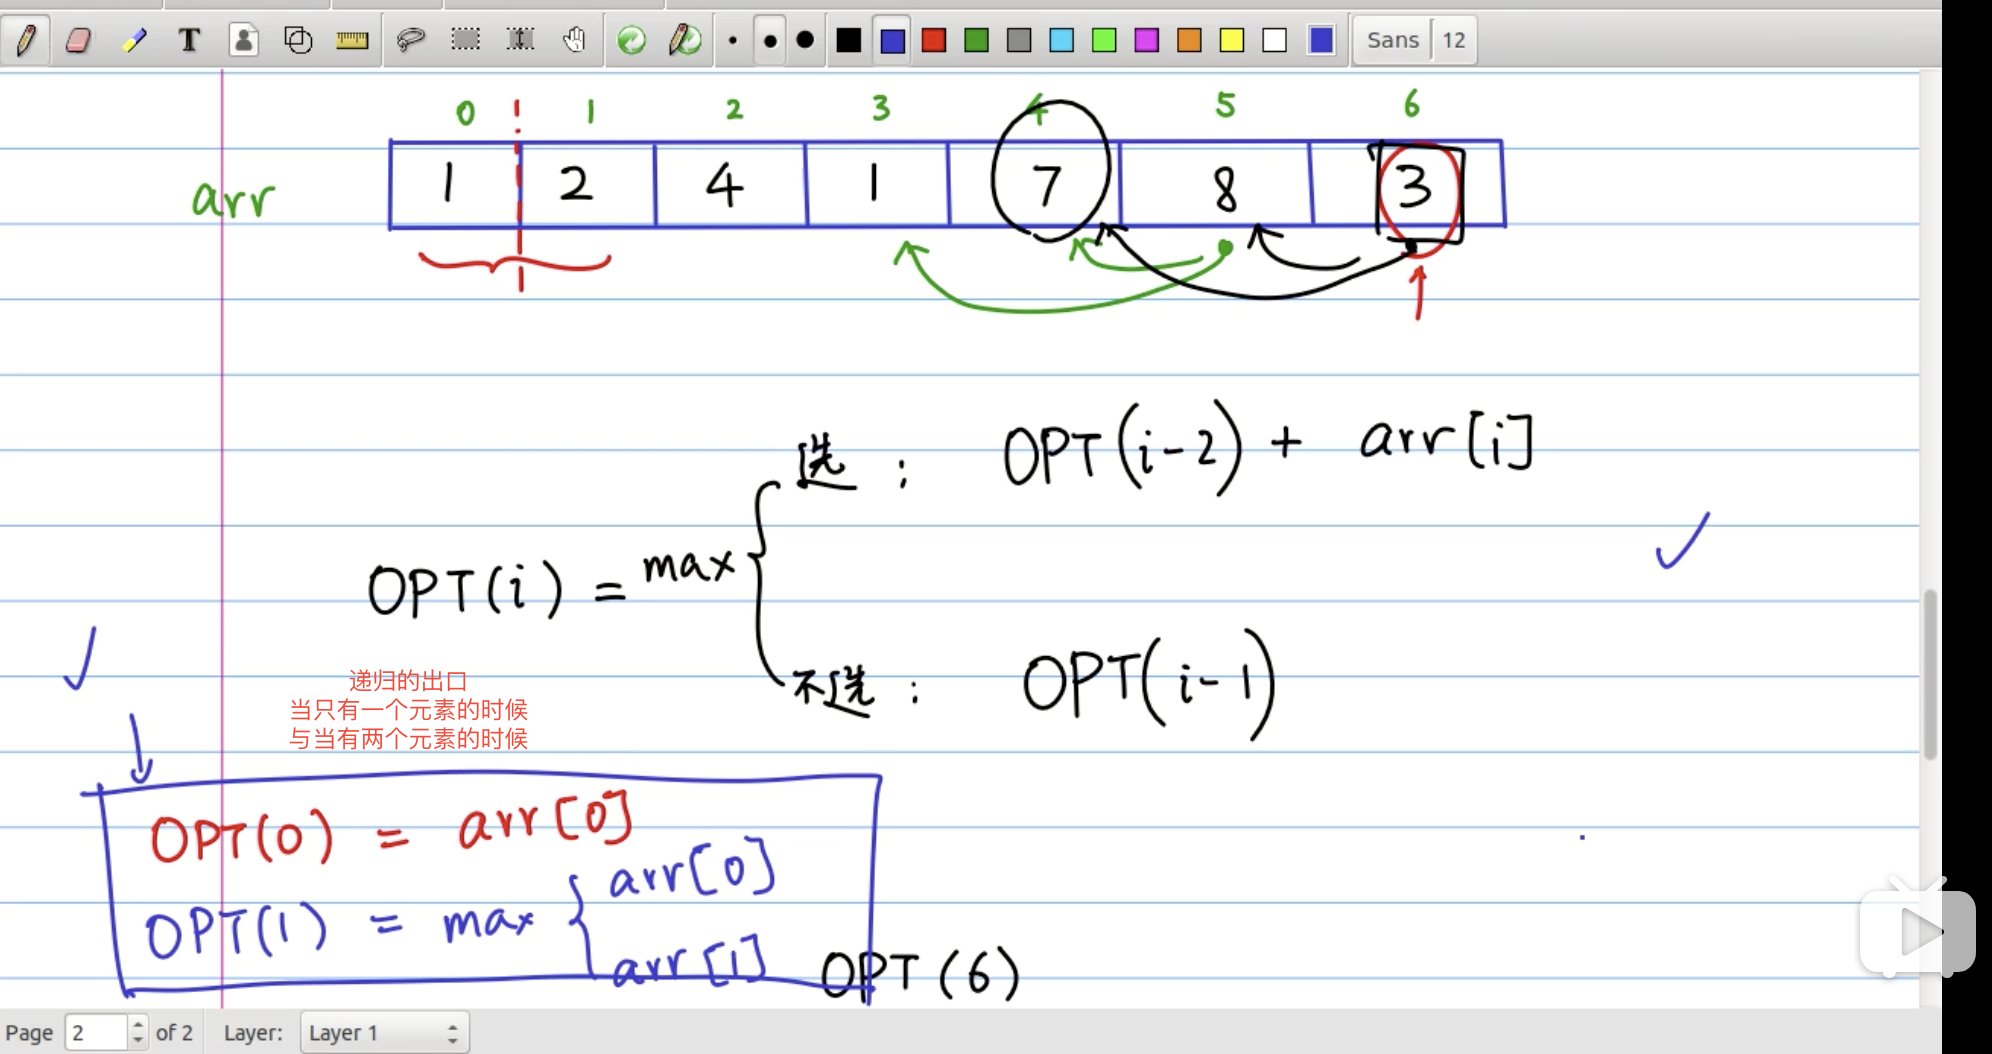 T Sans 12
0 1 2 3 4 5 6
arr 1 2 4 1 7 8 3
选： OPT(i-2) + arr[i]
OPT(i) = max
不选： OPT(i-1)
递归的出口
当只有一个元素的时候
与当有两个元素的时候
OPT(0) = arr[0]
OPT(1) = max { arr[0]
arr[1]
OPT(6)
Page 2 of 2 Layer: Layer 1